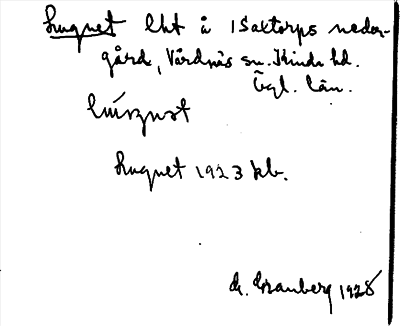 Lugnet lht å 1 Saxtorps neder-
gård, Vårdnäs sn. Kinda hd.
Ögl. län.
Lugnet 1923 kb.
Granberg 1928